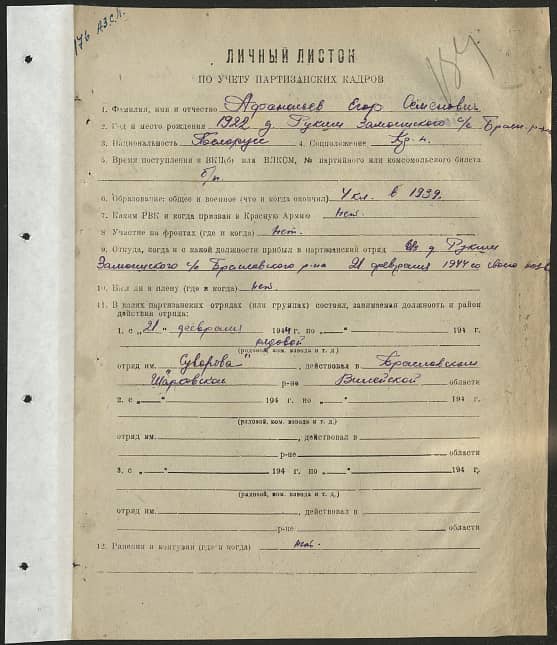 176 АЗ.С.Л.
ЛИЧНЫЙ ЛИСТОК
ПО УЧЕТУ ПАРТИЗАНСКИХ КАДРОВ
1. Фамилия, имя и отчество Афанасьев Егор Семенович
2. Год и место рождения 1922 д. Рукши Замошского с/с Брасл. р-на
3. Национальность Белорусс 4. Соцположение Кр-н.
5. Время поступления в ВКП(б) или ВЛКСМ, № партийного или комсомольского билета
б/п
6. Образование: общее и военное (что и когда окончил) 4 кл. в 1939г.
7. Каким РВК и когда призван в Красную Армию Нет.
8. Участие на фронтах (где и когда) Нет.
9. Откуда, когда и с какой должности прибыл в партизанский отряд Из д. Рукши
Замошского с/с Браславского р-на 21 февраля 1944 со своего хоз-ва
10. Был ли в плену (где и когда) Нет.
11. В каких партизанских отрядах (или группах) состоял, занимаемая должность и район
действия отряда:
1. с „21" февраля 1944 г. по „ " 194 г.
рядовой
(рядовой, ком. взвода и т. д.)
отряд им. „Суворова" , действовал в Браславском
Шарковском р-не Вилейской области
2. с „ " 194 г. по „ " 194 г.
(рядовой, ком. взвода и т. д.)
отряд им. , действовал в
р-не области
3. с „ " 194 г. по „ " 194 г.
(рядовой, ком. взвода и т. д.)
отряд им. , действовал в
р-не области
12. Ранения и контузии (где и когда) Нет.